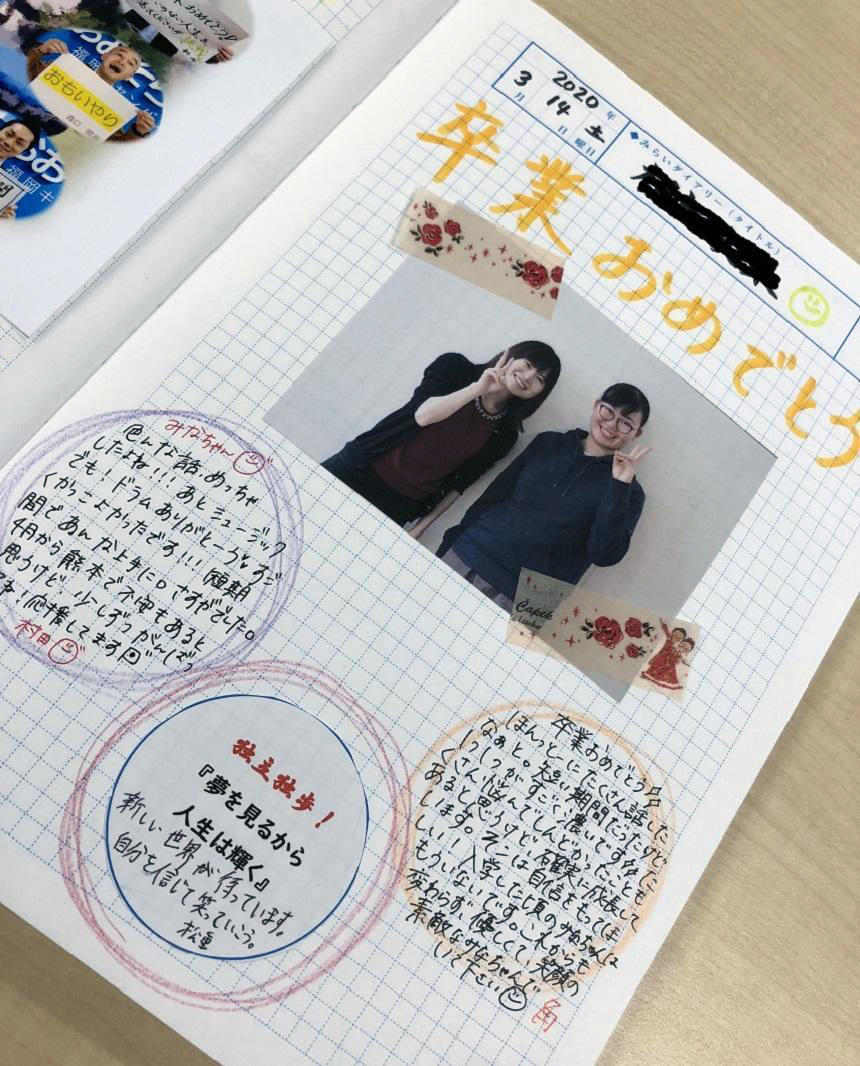 おもいやり
福岡
福岡キ
2020年
3月14日土曜日
◆みらいダイアリー（タイトル）
卒業おめでとう
みなちゃん
色んな話、めっちゃ
したよね!!!あとミュージック
でも!ドラムありがとーっ。すご
くかっこよかったです!!!短期
間であんな上手に。さすがでした。
4月から熊本で不安もあると
思うけど、少しずつがんばっ
応援してます
村田
Capek
独立独歩!
『夢を見るから
人生は輝く』
新しい世界が待っています。
自分を信じて笑っていこう。
松重
卒業おめでとう
ほんっとにたくさん話した
なぁと。短い期間だったけど
1つ1つがすごく濃いです。た
くさん悩んでしんどかったことも
あると思うけど確実に成長して
します。そこは自信をもってほ
しい!!入学した頃のみなちゃんは
もういないです。これからも
変わらず優しくて、笑顔の
素敵なみなちゃんで
いて下さい
角